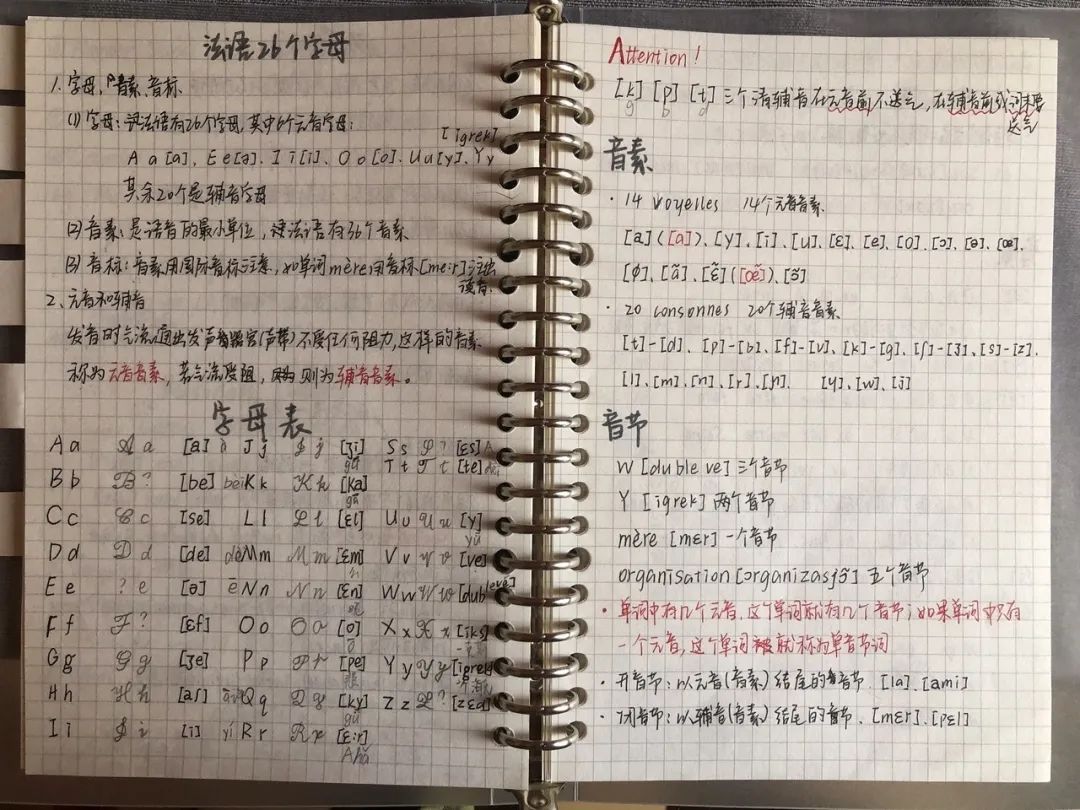 法语26个字母
1. 字母、音素、音标
(1) 字母：法语有26个字母, 其中6个元音字母：
[igrek]
A a [a], E e [ə]. I i [i]、O o [o]. U u [y]、Y y
其余20个是辅音字母
(2) 音素：是语音的最小单位，法语有36个音素
(3) 音标：音素用国际音标注意，如单词mère用音标[mɛ:r]注出
读音.
2、元音和辅音
发音时气流通过发声器官(声带)不受任何阻力,这样的音素
称为元音音素，若气流受阻，则为辅音音素。
字母表
A a A a [a] J j J j [ʒi] S s S ? [ɛs]
T t T t [te]
B b B ? [be] bèi K k K k [ka]
C c C c [se] L l L l [ɛl] U u U u [y]
D d D d [de] dè M m M m [ɛm] V v V v [ve]
E e ? e [ə] ē N n N n [ɛn] W w W w [dubləve]
F f F ? [ɛf] O o O o [o] X x X x [iks]
G g G g [ʒe] P p P p [pe] Y y Y y [igrek]
H h H h [aʃ] Q q Q q [ky] Z z Z ? [zɛd]
I i I i [i] yí R r R r [ɛ:r]
Attention!
[k] [p] [t] 三个清辅音在元音前不送气，在辅音前或词末要
g b d
送气
音素
· 14 voyelles 14个元音音素
[a]([ɑ])、[y]、[i]、[u]、[ɛ]、[e]、[o]、[ɔ]、[ə]、[œ]、
[ø]、[ɑ̃]、[ɛ̃]([œ̃])、[ɔ̃]
· 20 consonnes 20个辅音音素
[t]-[d]、[p]-[b]、[f]-[v]、[k]-[g]、[ʃ]-[ʒ]、[s]-[z]、
[l]、[m]、[n]、[r]、[ɲ]、 [ɥ]、[w]、[j]
音节
W [duble ve] 三个音节
Y [igrek] 两个音节
mère [mɛr] 一个音节
organisation [ɔrganizasjɔ̃] 五个音节
· 单词中有几个元音, 这个单词就有几个音节；如果单词中只有
一个元音, 这个单词就称为单音节词
· 开音节：以元音(音素)结尾的音节. [la]、[ami]
· 闭音节：以辅音(音素)结尾的音节. [mɛr]、[pɛl]